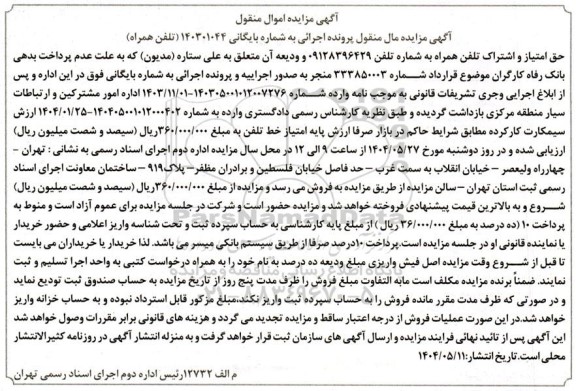 آگهی مزایده اموال منقول
آگهی مزایده مال منقول پرونده اجرائی به شماره بایگانی ۱۴۰۳۰۱۰۴۴ (تلفن همراه)
حق امتیاز و اشتراک تلفن همراه به شماره تلفن ۰۹۱۲۸۳۹۶۴۲۹ و ودیعه آن متعلق به علی ستاره (مدیون) که به علت عدم پرداخت بدهی
بانک رفاه کارگران موضوع قرارداد شماره ۳۳۳۸۵۰۰۰۳ منجر به صدور اجراییه و پرونده اجرائی به شماره بایگانی فوق در این اداره و پس
از ابلاغ اجرایی وجری تشریفات قانونی به موجب نامه وارده شماره ۱۴۰۳۰۵۰۰۱۰۱۲۰۰۷۲۷۶-۱۴۰۳/۱۱/۰۱ اداره امور مشترکین و ارتباطات
سیار منطقه مرکزی بازداشت گردیده و طبق نظریه کارشناس رسمی دادگستری وارده به شماره ۱۴۰۴۰۵۰۰۱۰۱۲۰۰۰۴۰۲-۱۴۰۴/۰۱/۲۵ ارزش
سیمکارت کارکرده مطابق شرایط حاکم در بازار صرفا ارزش پایه امتیاز خط تلفن به مبلغ ۳۶۰/۰۰۰/۰۰۰ریال (سیصد و شصت میلیون ریال)
ارزیابی شده و در روز دوشنبه مورخ ۱۴۰۴/۰۵/۲۷ از ساعت ۹ الی ۱۲ در محل سال مزایده اداره دوم اجرای اسناد رسمی به نشانی : تهران -
چهارراه ولیعصر – خیابان انقلاب به سمت غرب – حد فاصل خیابان فلسطین و برادران مظفر- پلاک۹۱۹ – ساختمان معاونت اجرای اسناد
رسمی ثبت استان تهران – سالن مزایده از طریق مزایده به فروش می رسد و مزایده از مبلغ ۳۶۰/۰۰۰/۰۰۰ریال (سیصد و شصت میلیون ریال)
شروع و به بالاترین قیمت پیشنهادی فروخته خواهد شد و مزایده حضور است و شرکت در جلسه مزایده برای عموم آزاد است و منوط به
پرداخت ۱۰ (ده درصد به مبلغ ۳۶/۰۰۰/۰۰۰ ریال ) از مبلغ پایه کارشناسی به حساب سپرده ثبت و تحت شناسه واریز اعلامی و حضور خریدار
یا نماینده قانونی او در جلسه مزایده است.پرداخت ۱۰درصد صرفا از طریق سیستم بانکی میسر می باشد. لذا خریدار یا خریداران می بایست
تا قبل از شروع وقت مزایده اصل فیش واریزی مبلغ ودیعه ده درصد به نام خود را به همراه درخواست کتبی به واحد اجرا تسلیم و ثبت
نمایند. ضمناً برنده مزایده مکلف است مابه التفاوت مبلغ فروش را ظرف مدت پنج روز از تاریخ مزایده به حساب صندوق ثبت تودیع نماید
و در صورتی که ظرف مدت مقرر مانده فروش را به حساب سپرده ثبت واریز نکند،مبلغ مزکور قابل استرداد نبوده و به حساب خزانه واریز
خواهد شد.در این صورت عملیات فروش از درجه اعتبار ساقط و مزایده تجدید می گردد و هزینه های قانونی برابر مقررات وصول خواهد شد
این آگهی پس از تائید نهائی فرایند مزایده و ارسال آگهی های سازمان ثبت قرار خواهد گرفت و به منزله انتشار آگهی در روزنامه کثیرالانتشار
محلی است.تاریخ انتشار:۱۴۰۴/۰۵/۱۱
م الف ۱۲۷۳۲رئیس اداره دوم اجرای اسناد رسمی تهران